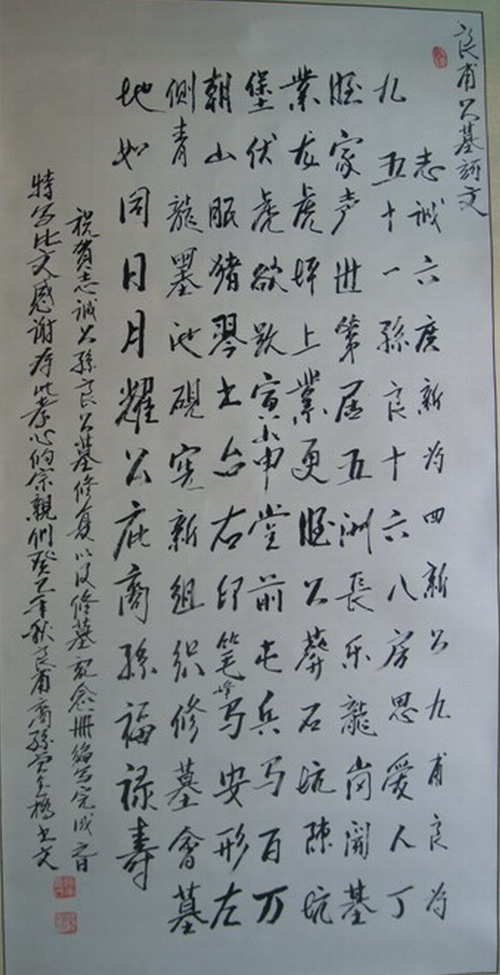 良甫公墓志文
志诚六广新为四新公九甫良为
九五十一孙良十六八房思爱人丁
旺家声世第居五洲长乐龍岗開基
業左虎坪上業更旺公葬石坑陳坑
堡伏虎欲跃寅山申堂前屯兵马百万
朝山眠猪琴土台右印笔马安形左
側青龍墨池硯宪新组织修墓會墓
地如同日月耀公庇裔孫福禄寿
祝贺志诚公孫良公墓修复以及修墓紀念册编写完成之日
特写此文感谢有此孝心的宗親們癸巳年秋良甫裔孫 文